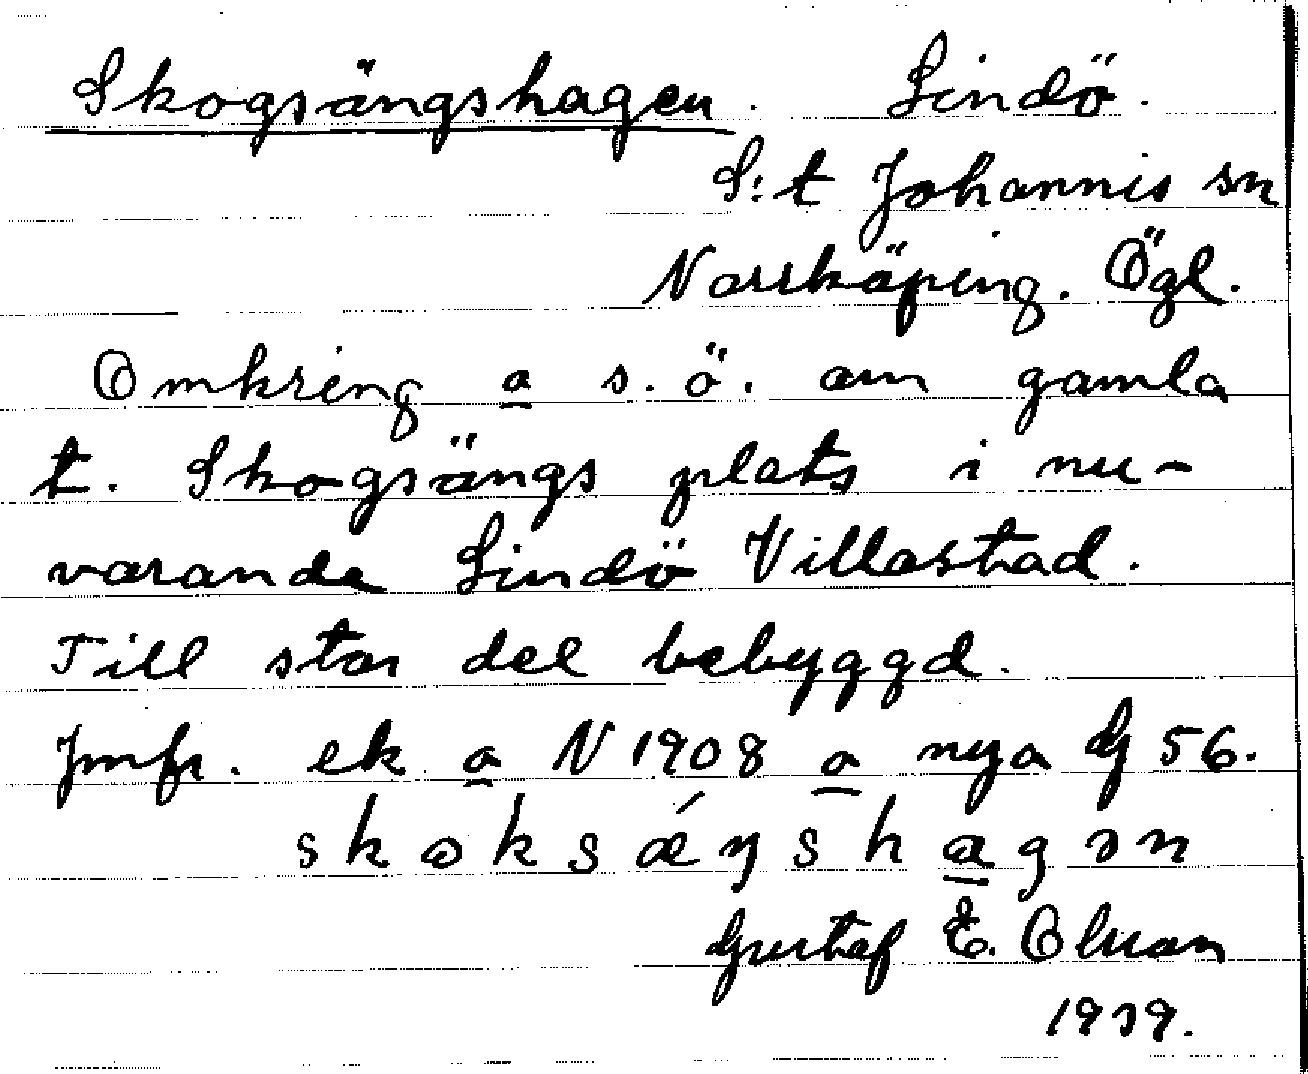 Skogsängshagen. Lindö.
S:t Johannis sn
Norrköping. Ögl.
Omkring a s.ö. om gamla
t. Skogsängs plats i nu-
varande Lindö Villastad.
Till stor del bebyggd.
Jmfr. ek a N 1908 a nya G 56.
skoksǽŋshagən
Gustaf E. Olsson
1939.